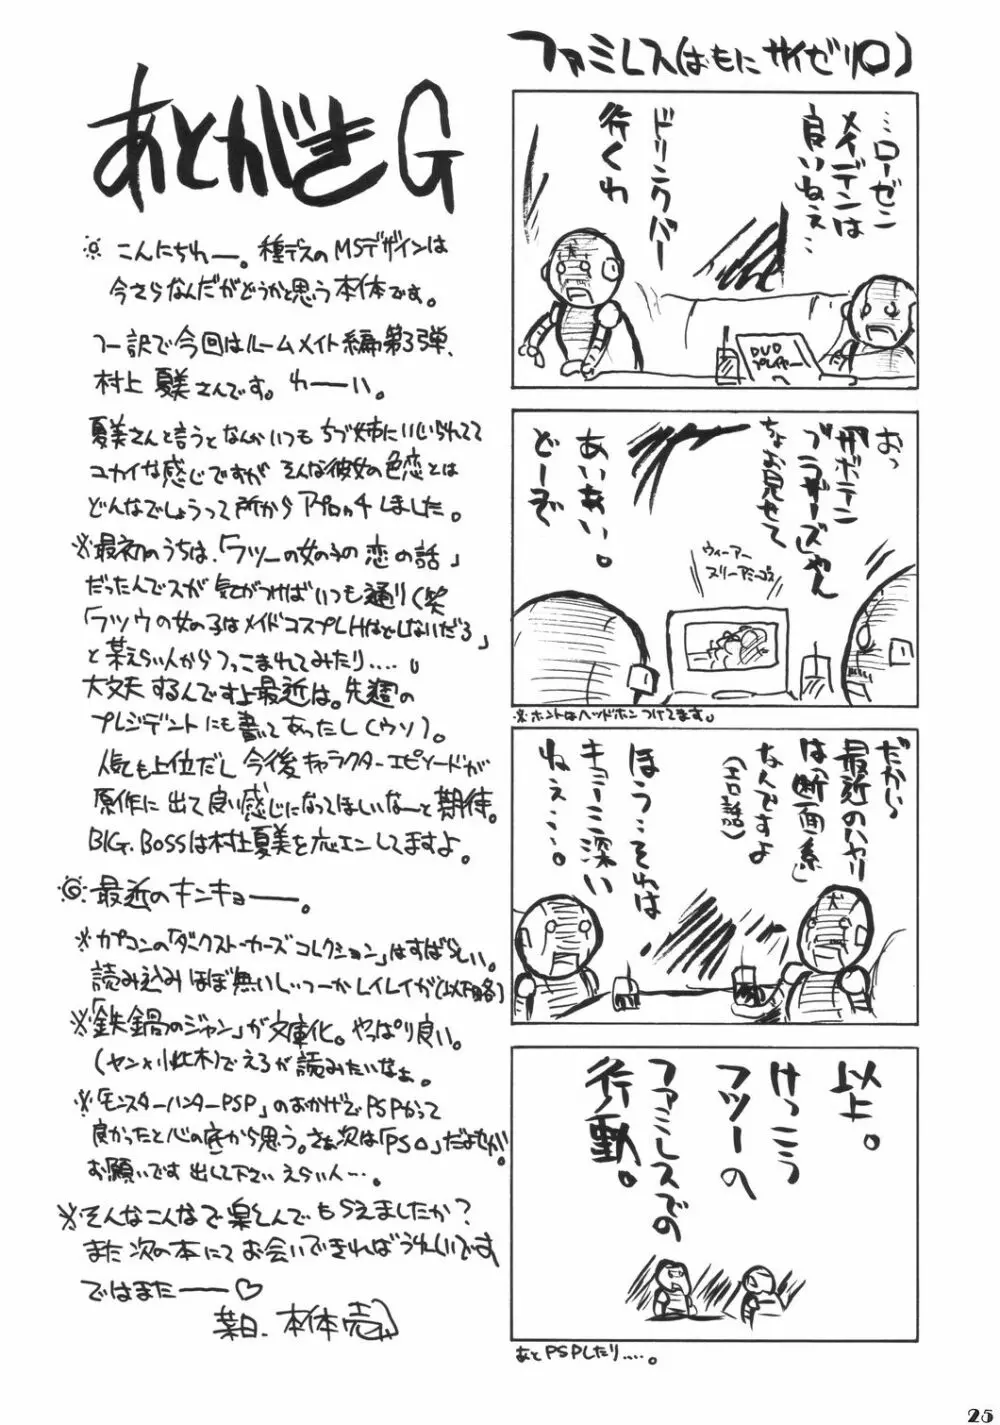 あとがきG
こんにちわー。種デスのMSデザインは
今さらなんだがどうかと思う本体です。
つー訳で今回はルームメイト編第3弾、
村上 夏美さんです。わーい。
夏美さんと言うとなんかいつもちづ姉にいじられてて
ユカイな感じですが そんな彼女の色恋とは
どんなでしょうって所からアプローチしました。
※最初のうちは、「フツーの女の子の恋の話」
だったんでスが 気がつけばいつも通り(笑
「フツウの女の子はメイドコスプレHはしないだろ」
と某えらい人からつっこまれてみたり.....。
大丈夫 するんですよ最近は。先週の
プレジデントにも書いてあったし(ウソ)。
人気も上位だし 今後キャラクターエピソードが
原作に出て良い感じになってほしいなーと期待。
BIG. BOSSは村上夏美を応エンしてますよ。
最近のキンキョー。
※カプコンの「ダークストーカーズコレクション」はすばらしい。
読み込みほぼ無いしつーかレイレイが(以下略)
※「鉄鍋のジャン」が文庫化。やっぱり良い。
(ヤン×小此木)でえろが読みたいなぁ。
※「モンスターハンターPSP」のおかげでPSPかって
良かったと心の底から思う。さぁ次は「PS○」だよせが。
お願いです 出して下さい えらい人...。
※そんなこんなで楽しんでもらえましたか?
また次の本にてお会いできればうれしいです
ではまたー♡
某日. 本体売
ファミレス(はもに サイゼリ○)
…ローゼン
メイデンは
良いねぇ…
ドリンクバー
行くわ
DVD
プレイヤー
へ
おっ
『サボテン
ブラザーズ』じゃん
ちょお見せて
あいあい。
どーぞ
ウィーアー
スリーアミーゴス
※ホントはヘッドホンつけてます。
だから
最近のハヤリ
は「断面系」
なんですよ
(エロ話)
ほう…それは
キョーミ深い
ねぇ…。
以上。
けっこう
フツーの
ファミレスでの
行動。
あとPSPしたり.....。
25